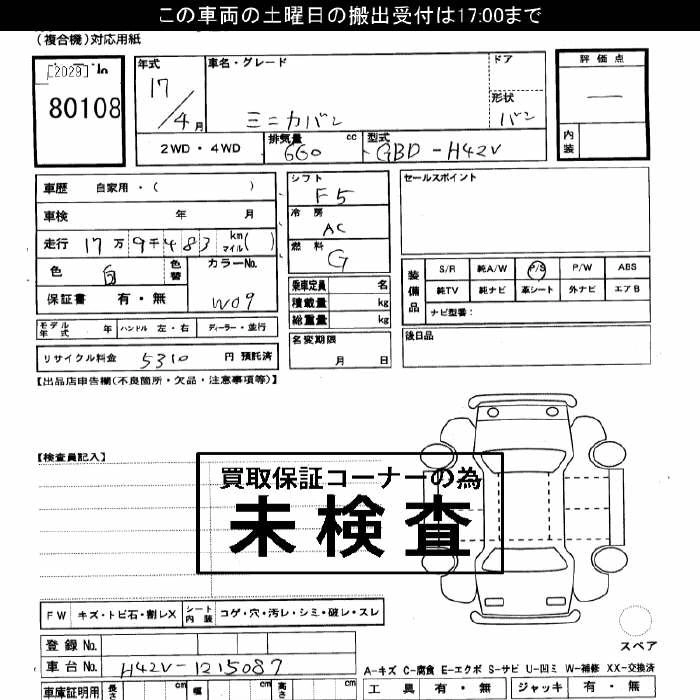 この車両の土曜日の搬出受付は17:00まで
(複合機)対応用紙
[2029] In
80108
年式 車名・グレード ドア 評価点
17/4月 ミニカバン 形状 バン
2WD・4WD 排気量 660 cc 型式 GBD-H42V 内装
車歴 自家用・( ) シフト F5 セールスポイント
車検 年 月 冷房 AC
走行 17万9千483 km マイル( ) 燃料 G
色 白 色替 カラーNo. W09
保証書 有・無
装備品 S/R 純A/W P/S P/W ABS
純TV 純ナビ 革シート 外ナビ エアB
ナビ型番:
乗車定員 名
積載量 kg
総重量 kg
モデル年式 年 ハンドル 左・右 ディーラー・並行
名変期限 月 日
後日品
リサイクル料金 5310 円 預託済
【出品店申告欄(不良箇所・欠品・注意事項等)】
【検査員記入】
買取保証コーナーの為
未検査
FW キズ・トビ石・割レX シート内装 コゲ・穴・汚レ・シミ・破レ・スレ
登録No.
車台No. H42V-1215087
スペア
A-キズ C-腐食 E-エクボ S-サビ U-凹ミ W-補修 XX-交換済
車庫証明用 長さ cm 幅 cm 高さ cm
工具 有・無 ジャッキ 有・無